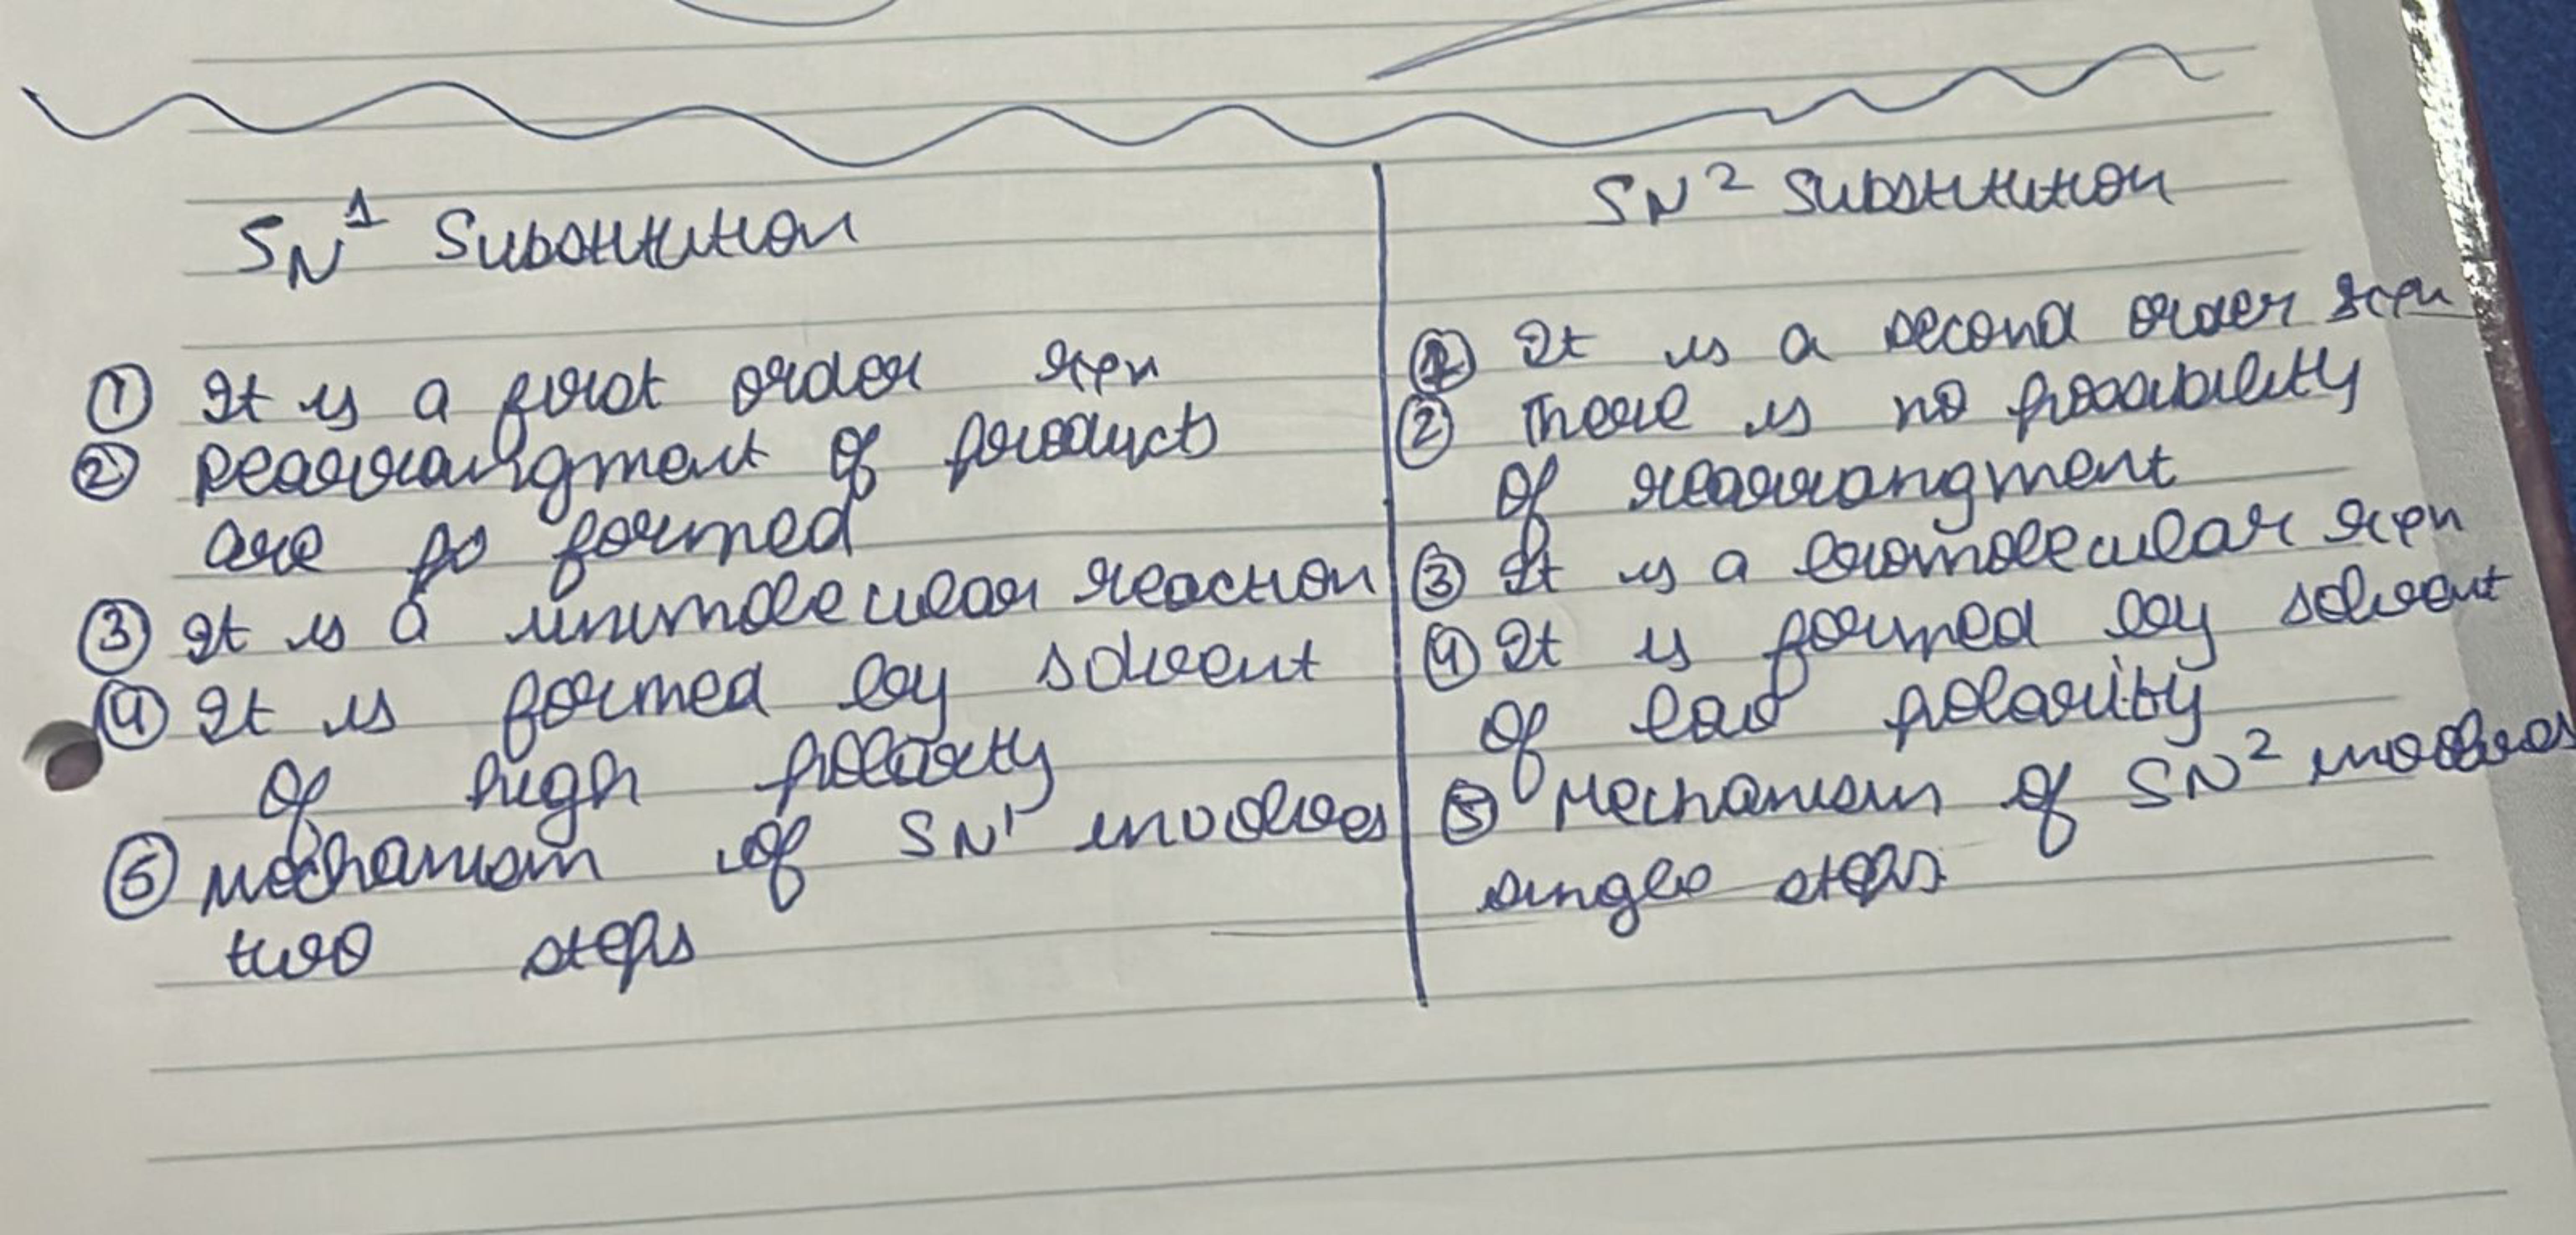 SN1 Substitution
① It is a first order rxn
② Rearrangment of products
are formed
③ It is a unimolecular reaction
④ It is formed by solvent
of high polarity
⑤ Mechanism of SN1 involves
two steps
SN2 Substitution
① It is a second order rxn
② There is no possibility
of rearrangment
③ It is a bimolecular rxn
④ It is formed by solvent
of low polarity
⑤ Mechanism of SN2 involves
single steps.